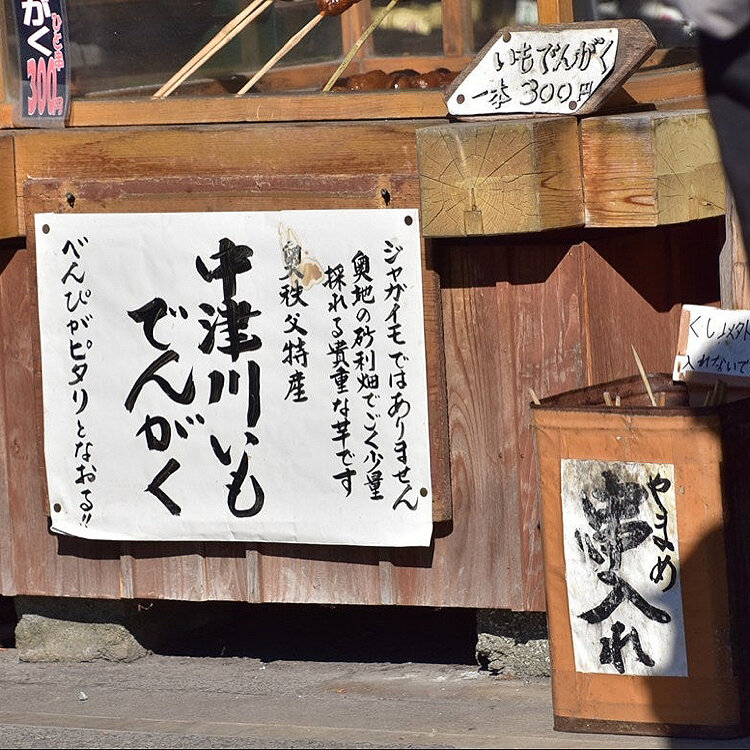 がく
ひと串
300円
いもでんがく
一本300円
ジャガイモではありません
奥地の砂利畑でごく少量
採れる貴重な芋です
奥秩父特産
中津川いも
でんがく
べんぴがピタリとなおる!!
入れないで
やまめ
串入れ